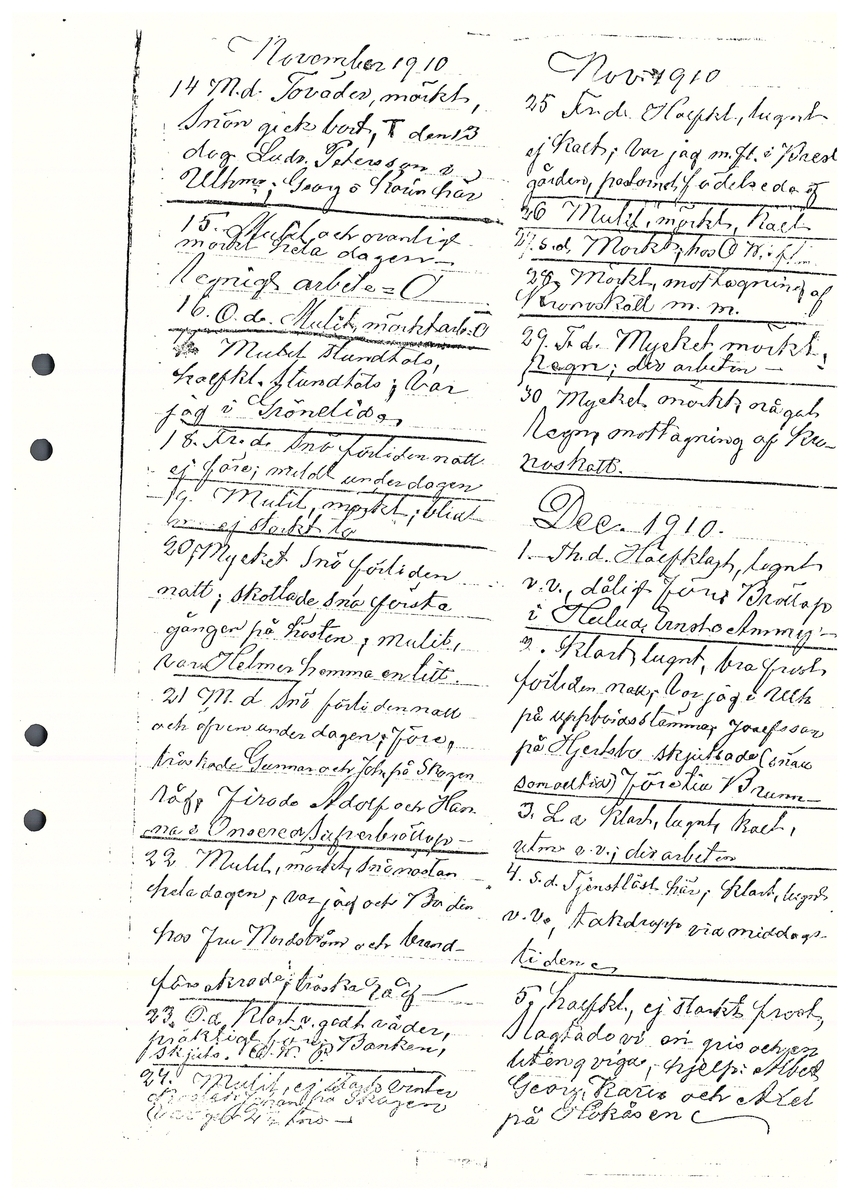 November 1910
14 M.d. Toväder, mörkt,
Snön gick bort, T den 13
dog Ludv. Petersson i
Ulthm; Georg o Karin här
15. Mulit och ovanligt
mörkt hela dagen
regnigt arbete = O
16. O.d. Mulit, mörkt arb. O
17 Mulit stundtals,
halfkl. stundtals; Var
jag i Grönelid
18. Fr.d. Snö förliden natt
ej före; mildt under dagen
19. Mulit, mörkt; blidt
ej starkt tö
20, Mycket Snö förliden
natt; skottade snö första
gången på hösten; mulit,
var Helmer hemma en titt.
21 M.d Snö förliden natt
och öfven under dagen; före,
tröskade Gunnar och Joh. på Skogen
råg, firade Adolf och Han
na i Onsered Silfverbröllop
22 Mulit, mörkt, snö nästan
hela dagen, var jag och Bodin
hos Fru Nordström och brand-
försäkrade; tröska råg
23. O.d. Klart v. godt väder,
präktigt före;
skjuts. Banken,
24. Mulit, ej starkt vinter
på Skogen
Nov. 1910
25 Fr.d. Halfkl., lugnt
ej kalt; var jag m.fl. i Bred
gården, pastorns födelsedag
26 Mulit, mörkt, kalt
27. S.d. Mörkt; hos O W.
28. Mörkt, mottagning af
Kronoskatt m. m.
29. T.d. Mycket mörkt,
regn; div arbeten
30 Mycket mörkt, något
regn, mottagning af Kro-
noskatt.
Dec. 1910.
1. Th.d. Halfklart, lugnt
v.v., dåligt före; Bröllop
i Helud, Ernst o Ammy
2. Klart, lugnt, bra frost
förliden natt; Var jag i Ulth
på uppbördsstämma; Josefsson
på Hjertsbo skjutsade (snäll
som alltid) före till Brunn
3. L.d Klart, lugnt, kalt,
utm v.v.; div arbeten
4. S.d. Tjenstlöst här; klart, lugnt
v.v., takdropp vid middags-
tiden
5, halfkl., ej starkt frost,
slagtade vi en gris och en
liten qviga, hjelp: Albert
Georg, Karin och Axel
på Hokåsen